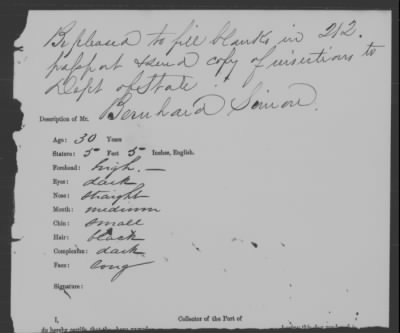 Be pleased to fill blanks in 212.
passport & send copy of insertions to
Dept of State.
Bernhard Simon.
Description of Mr.
Age: 30 Years
Stature: 5 Feet 5 Inches, English.
Forehead: high. —
Eyes: dark
Nose: straight
Mouth: medium
Chin: small
Hair: black
Complexion: dark
Face: long
Signature:
I, Collector of the Port of
do hereby certify, that the above